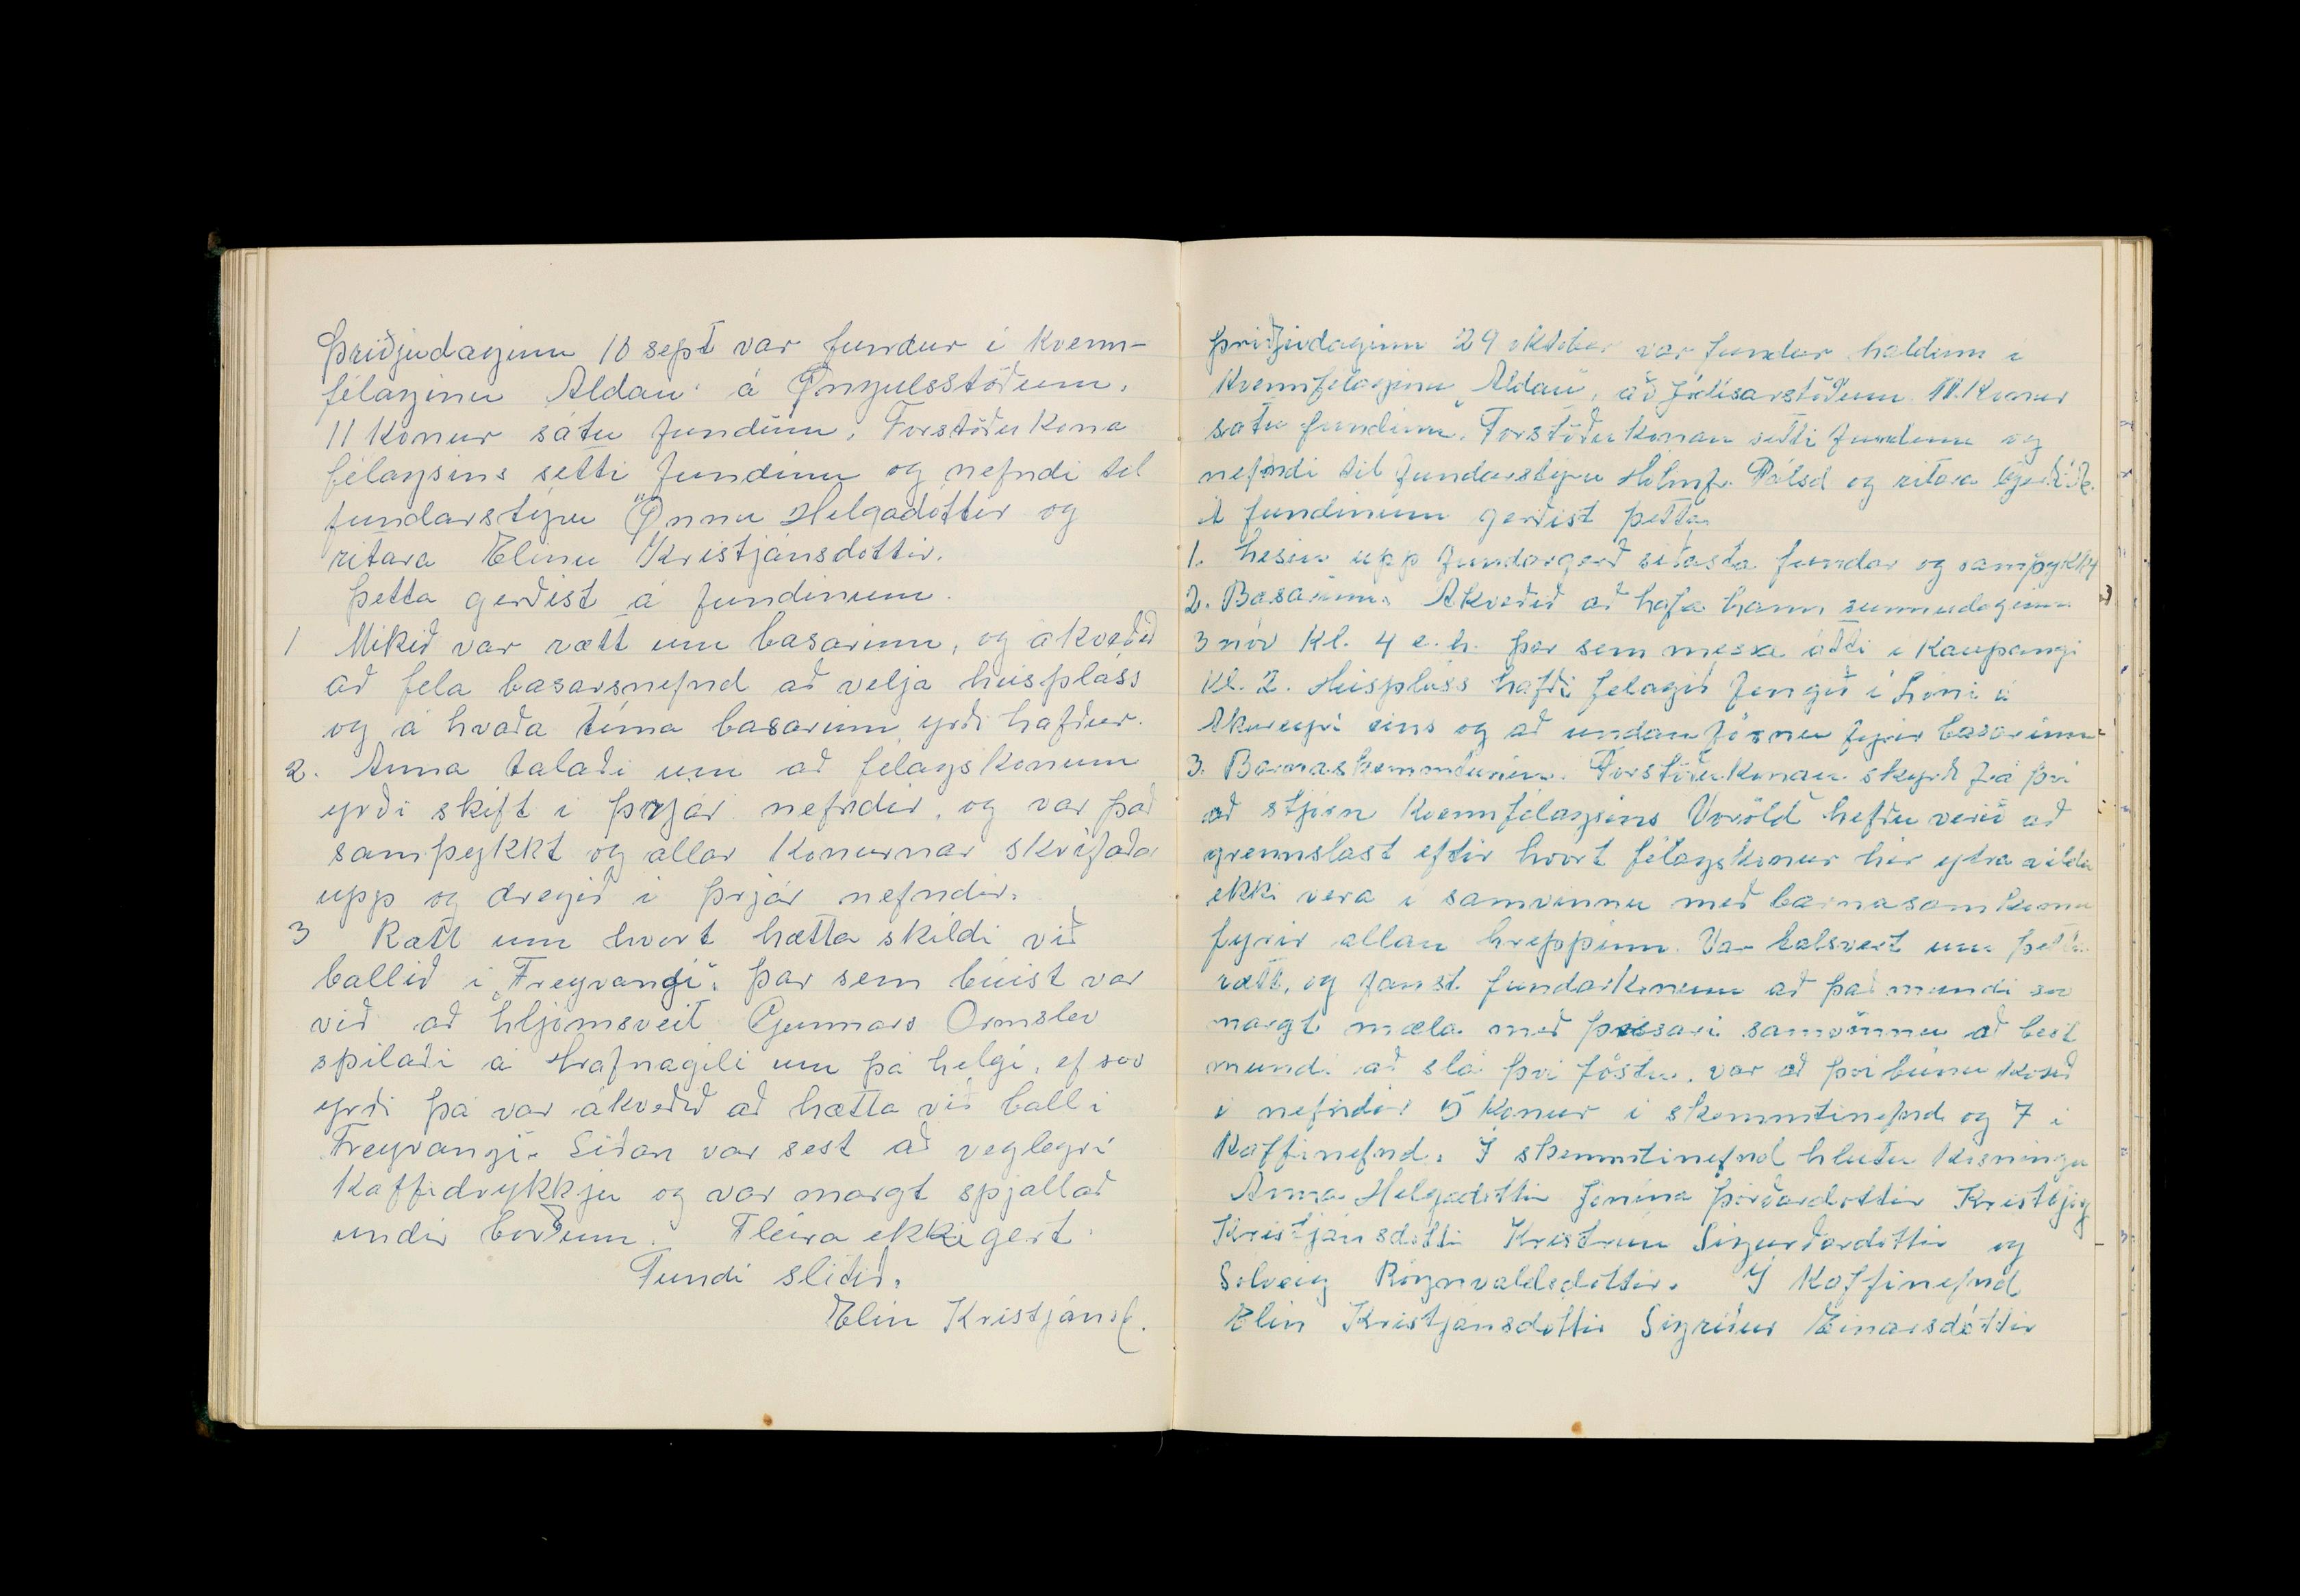 Þriðjudaginn 10 sept var fundur í kvenn-
félaginu Aldan á Öngulsstöðum.
11 konur sátu fundinn. Forstöðu kona
félagsins setti fundinn og nefndi til
fundarstýru Önnu Helgadóttir og
ritara Elinu Kristjánsdóttir.
Þetta gerðist á fundinum.
1 Mikið var rætt um basarinn, og ákveðið
að fela basarsnefnd að velja húspláss
og á hvaða tíma basarinn yrði hafður.
2. Anna talaði um að félagskonum
yrði skift í þrjár nefndir, og var það
samþykkt og allar konurnar skrifaðar
upp og dregið í þrjár nefndir.
3 Rætt um hvort hætta skildi við
ballið í „Freyvangi" þar sem búist var
við að hljómsveit Gunnars Ormslev
spilaði á Hrafnagili um þá helgi, ef svo
yrði þá var ákveðið að hætta við ball í
Freyvangi. Síðan var sest að veglegri
kaffidrykkju og var margt spjallað
undir borðum. Fleira ekki gert.
Fundi slitið.
Elin Kristjánsd.
Þriðjudaginn 29 oktober var fundur haldinn í
Kvennfélaginu „Aldan", að Jódísarstöðum 11. Konur
sátu fundinn. Forstöðukonan setti fundinn og
nefndi til fundarstýru Hólmfr. Pálsd og ritara
Á fundinum gerðist þetta
1. Lesin upp fundargerð síðasta fundar og samþykkt
2. Basarinn. Akveðið að hafa hann sunnudaginn
3 nóv kl. 4 e.h. þar sem messa átti í Kaupangi
kl. 2. Húspláss hafði félagið fengið í Lóni á
Akureyri eins og að undanförnu fyrir basarinn
3. Barnaskemmtunin. Forstöðukonan skyrði frá því
að stjórn kvennfélagsins Voröld hefðu verið að
grennslast eftir hvort félagskonur hér ytra vildu
ekki vera í samvinnu með barnasamkomu
fyrir allan hreppinn. Var talsvert um þetta
rætt, og fanst fundarkonum að það mundi svo
margt mæla með þessari samvinnu að best
mundi að slá því föstu, var að því búnu kosið
í nefndir 5 konur í skemmtinefnd og 7 í
Kaffinefnd. Í skemmtinefnd hlutu kosningu
Anna Helgadóttir Jónína Þórðardóttir Kristbjörg
Kristjánsdóttir Kristrún Sigurðardóttir og
Solveig Rögnvaldsdóttir. Í Kaffinefnd
Elin Kristjánsdóttir Sigríður Einarsdóttir